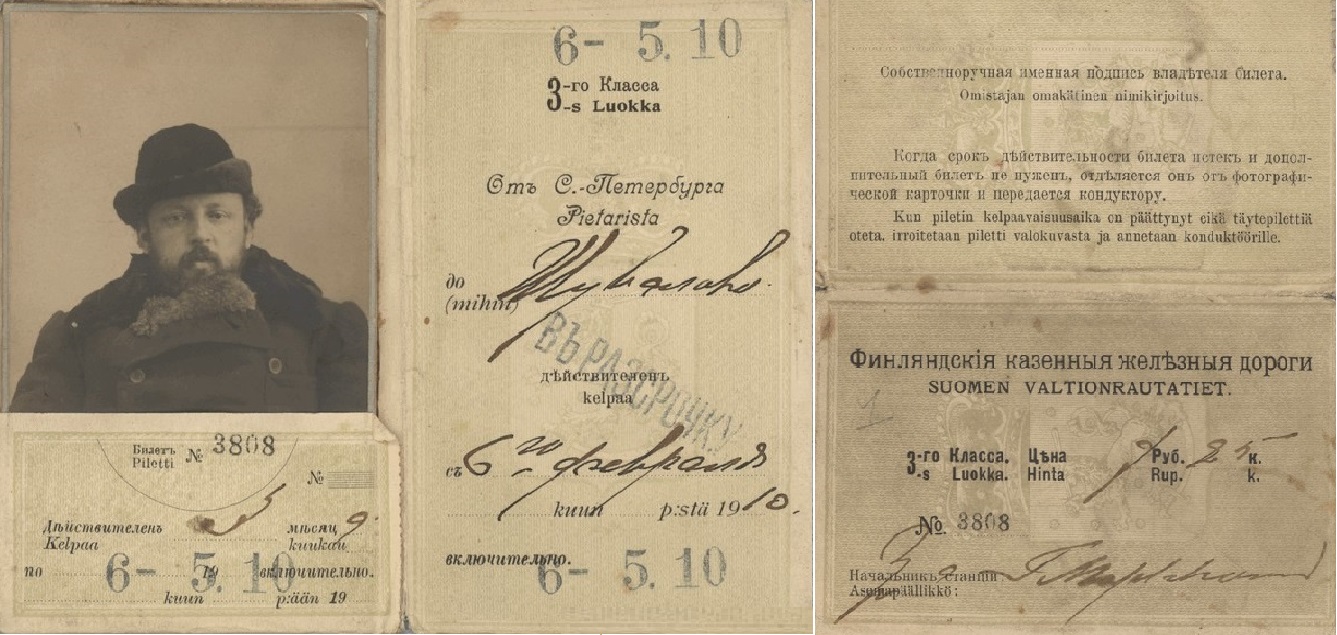 Билетъ
Piletti
№ 3808
№
Дѣйствителенъ 3 мѣсяц
Kelpaa kuukau
по 19 включительно.
6- 5. 10
kuun p:ään 19
6- 5. 10
3-го Класса
3-s Luokka
Отъ С.-Петербурга
Pietarista
до Шувалово.
(mihin)
ВЪ РАЗСРОЧКУ
дѣйствителенъ
kelpaa
съ 6го февраля
kuun p:stä 1910.
включительно.
6- 5. 10
Собственноручная именная подпись владѣтеля билета.
Omistajan omakätinen nimikirjoitus.
Когда срокъ дѣйствительности билета истекъ и допол-
нительный билетъ не нуженъ, отдѣляется онъ отъ фотографи-
ческой карточки и передается кондуктору.
Kun piletin kelpaavaisuusaika on päättynyt eikä täytepilettiä
oteta, irroitetaan piletti valokuvasta ja annetaan konduktöörille.
Финляндскія казенныя желѣзныя дороги
SUOMEN VALTIONRAUTATIET.
3-го Класса. Цѣна Руб. 25 к.
3-s Luokka. Hinta Rup. k.
№ 3808
Начальникъ станціи
Asemapäällikkö: